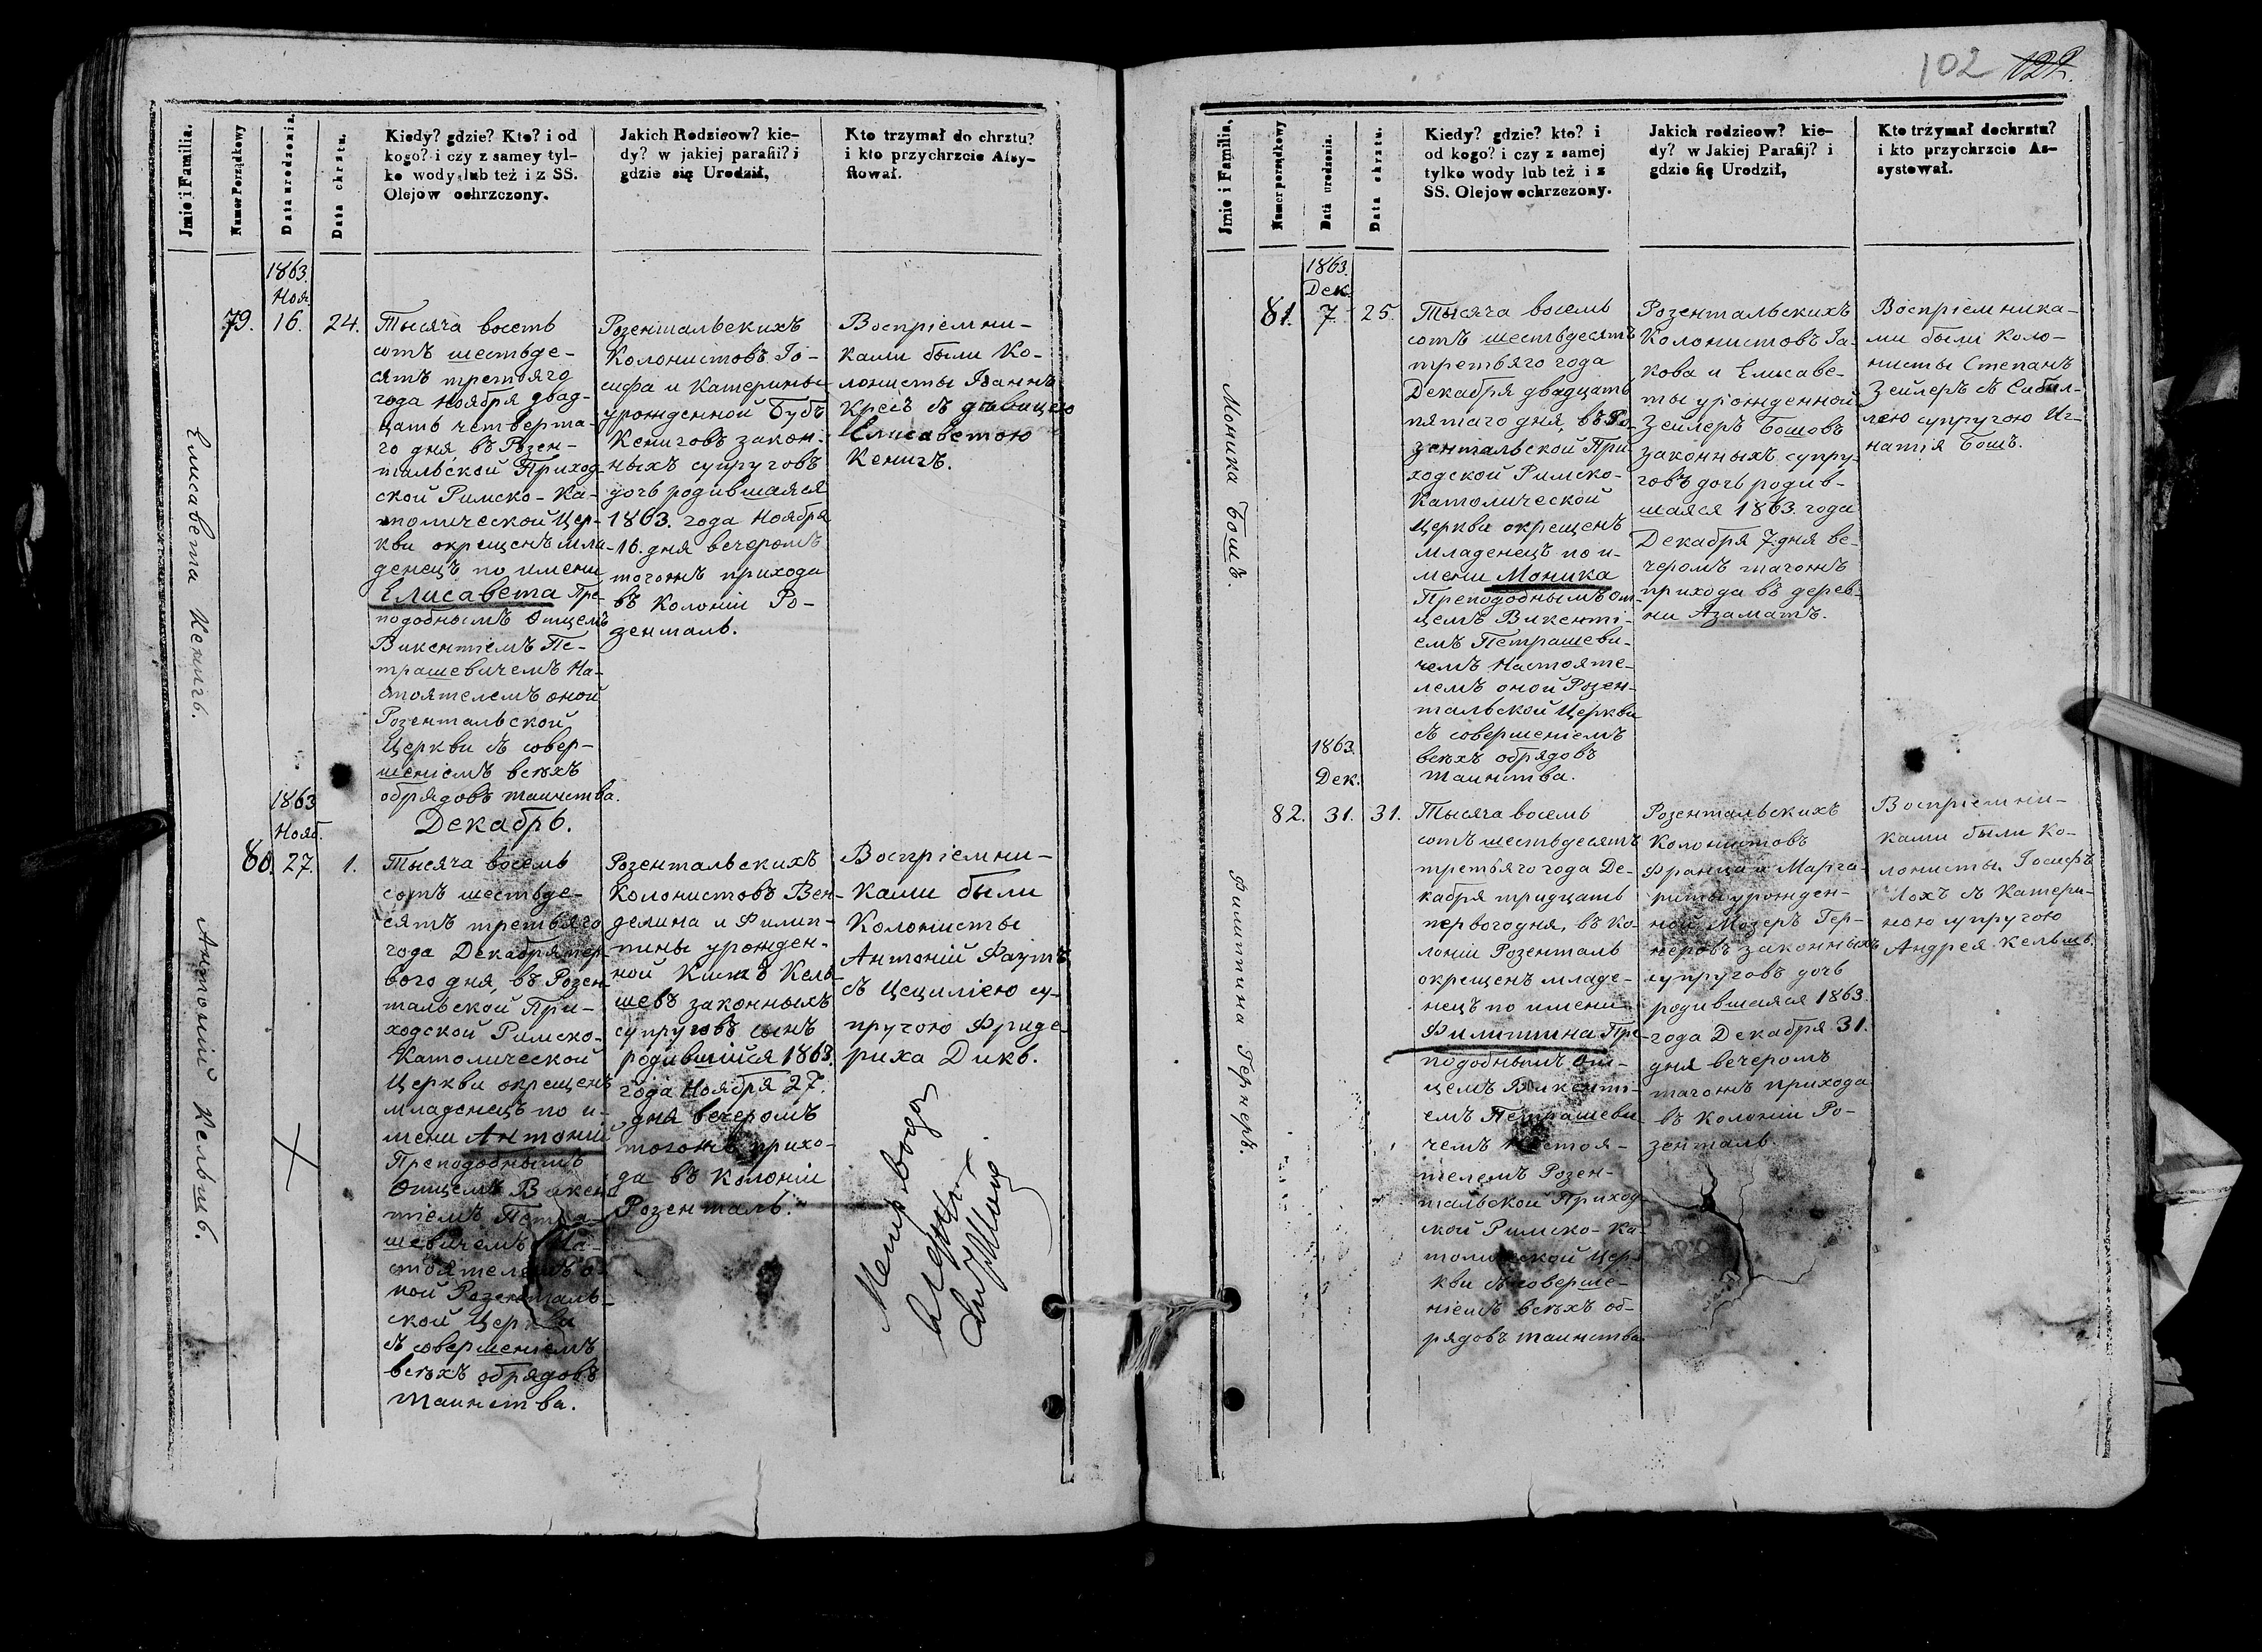 102 122.
Jmie i Familia.
Numer Porządkowy
Data urodzenia.
Data chrztu.
Kiedy? gdzie? Kto? i od
kogo? i czy z samey tyl-
ko wody lub też i z SS.
Olejow ochrzczony.
Jakich Rodzicow? kie-
dy? w jakiej parafii? i
gdzie się Urodził,
Kto trzymał do chrztu?
i kto przychrzcie Assy-
stował.
Елисавета Кенигъ.
1863.
Ноя.
79. 16. 24.
Тысяча восемь
сотъ шестьде-
сятъ третьяго
года Ноября двад-
цать четверта-
го дня, въ Розен-
тальской Приход-
ской Римско-Ка-
толической Цер-
кви окрещенъ мла-
денецъ по имени
Елисавета Пре-
подобнымъ Отцемъ
Викентіемъ Пе-
трашевичемъ На-
стоятелемъ оной
Розентальской
Церкви съ совер-
шеніемъ всѣхъ
обрядовъ таинства.
Розентальскихъ
Колонистовъ Іо-
сифа и Катерины
урожденной Бубъ
Кениговъ закон-
ныхъ супруговъ
дочь родившаяся
1863. года Ноября
16. дня вечеромъ
тогожъ прихода
въ Колоніи Ро-
зенталь.
Воспріемни-
ками были Ко-
лонисты Іоаннъ
Кресъ съ дѣвицею
Елисаветою
Кенигъ.
Антоній Кельшъ.
1863
Нояб.
Декабрь.
80. 27. 1.
Тысяча восемь
сотъ шестьде-
сятъ третьяго
года Декабря пер-
вого дня, въ Розен-
тальской При-
ходской Римско-
Католической
Церкви окрещенъ
младенецъ по и-
мени Антоній
Преподобнымъ
Отцемъ Викен-
тіемъ Петра-
шевичемъ На-
стоятелемъ о-
ной Розенталь-
ской Церкви
съ совершеніемъ
всѣхъ обрядовъ
таинства.
Розентальскихъ
Колонистовъ Вен-
делина и Филип-
пины урожден-
ной Кель-
шевъ законныхъ
супруговъ сынъ
родившійся 1863.
года Ноября 27.
дня вечеромъ
тогожъ прихо-
да въ Колоніи
Розенталь.
Воспріемни-
ками были
Колонисты
Антоній Фаутъ
съ Цециліею су-
пругою Фриде-
риха Дикъ.
Jmie i Familia.
Numer porządkowy
Data urodzenia.
Data chrztu.
Kiedy? gdzie? kto? i
od kogo? i czy z samej
tylko wody lub też i z
SS. Olejow ochrzczony.
Jakich rodzicow? kie-
dy? w Jakiej Parafij? i
gdzie się Urodził,
Kto trzymał dochrztu?
i kto przychrzcie As-
systował.
Моника Бошъ.
1863.
Дек.
81. 7. 25.
Тысяча восемь
сотъ шестьдесятъ
третьяго года
Декабря двадцать
пятаго дня, въ Ро-
зентальской При-
ходской Римско-
Католической
Церкви окрещенъ
младенецъ по и-
мени Моника
Преподобнымъ От-
цемъ Викенті-
емъ Петрашеви-
чемъ Настояте-
лемъ оной Розен-
тальской Церкви
съ совершеніемъ
всѣхъ обрядовъ
таинства.
Розентальскихъ
Колонистовъ Іа-
кова и Елисаве-
ты урожденной
Зейлеръ Бошовъ
законныхъ супру-
говъ дочь родив-
шаяся 1863. года
Декабря 7. дня ве-
черомъ тогожъ
прихода въ дерев-
ни Азаматъ.
Воспріемника-
ми были Коло-
нисты Степанъ
Зейлеръ съ Сабил-
лею супругою Иг-
натія Бошъ.
Филиппина Гернеръ.
1863.
Дек.
82. 31. 31.
Тысяча восемь
сотъ шестьдесятъ
третьяго года Де-
кабря тридцать
первого дня, въ Ко-
лоніи Розенталь
окрещенъ младе-
нецъ по имени
Филиппина Пре-
подобнымъ От-
цемъ Викенті-
емъ Петрашеви-
чемъ Настоя-
телемъ Розен-
тальской Приход-
ской Римско-Ка-
толической Цер-
кви съ соверше-
ніемъ всѣхъ об-
рядовъ таинства.
Розентальскихъ
Колонистовъ
Франца и Марга-
риты урожден-
ной Мозеръ Гер-
неровъ законныхъ
супруговъ дочь
родившаяся 1863.
года Декабря 31.
дня вечеромъ
тогожъ прихода
въ Колоніи Ро-
зенталь.
Воспріемни-
ками были Ко-
лонисты Іосифъ
Лохъ съ Катери-
ною супругою
Андрея Кельшъ.